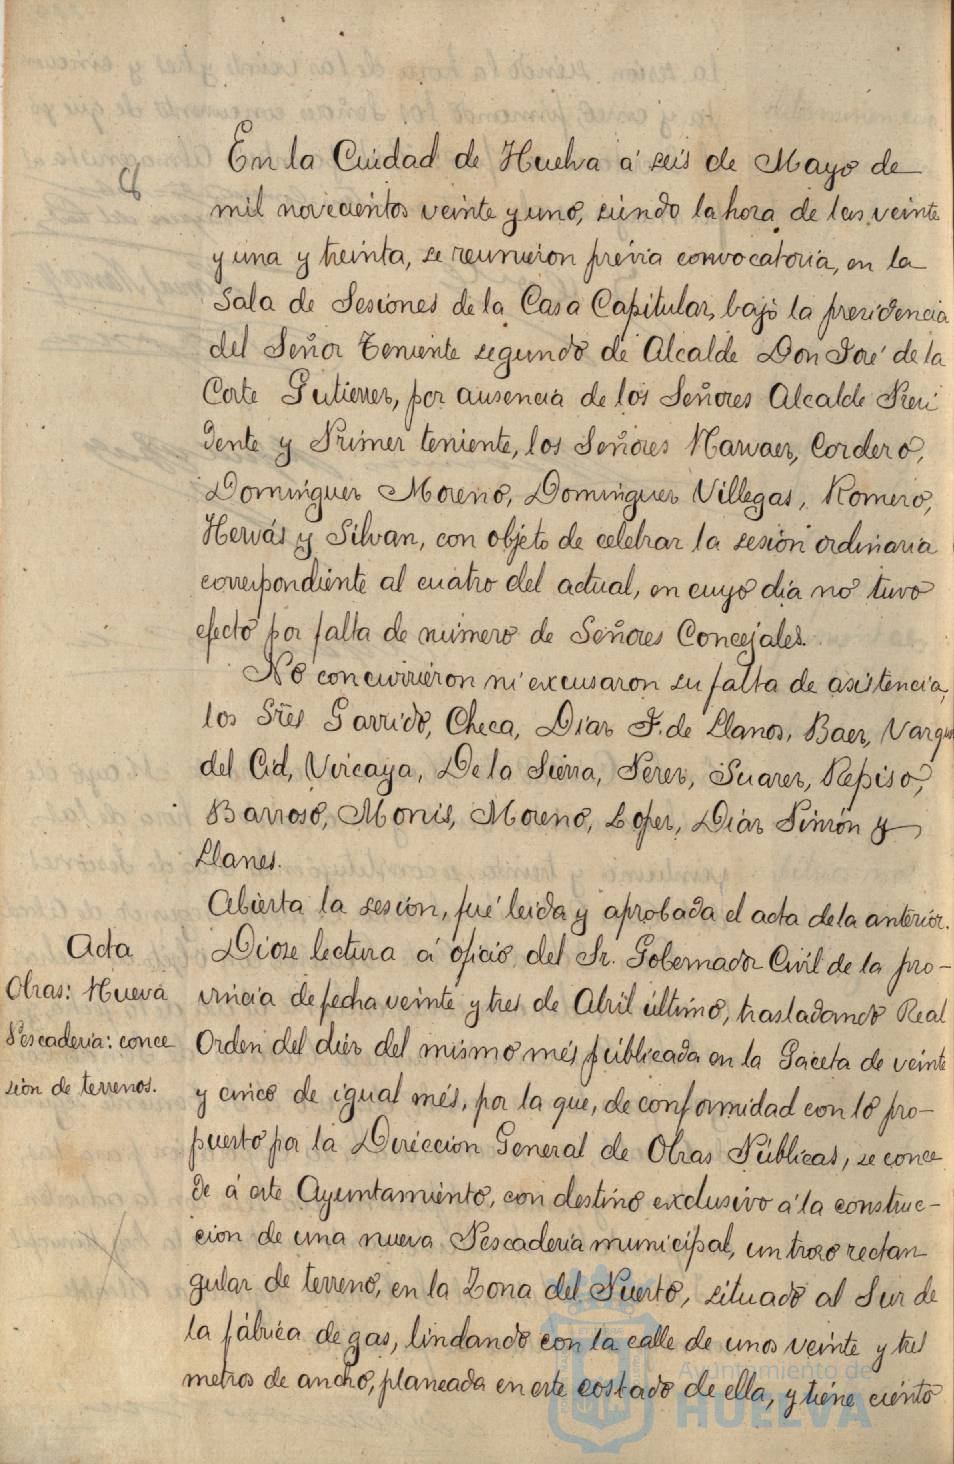 En la Cuidad de Huelva á seis de Mayo de
mil novecientos veinte y uno, siendo la hora de las veinte
y una y treinta, se reunieron prévia convocatoria, en la
Sala de Sesiones de la Casa Capitular, bajo la presidencia
del Señor Teniente segundo de Alcalde Don José de la
Corte Gutierrez, por ausencia de los Señores Alcalde Presi
dente y Primer teniente, los Señores Narvaez, Cordero,
Dominguez Moreno, Dominguez Villegas, Romero,
Hervás y Silvan, con objeto de celebrar la sesión ordinaria
correspondiente al cuatro del actual, en cuyo día no tuvo
efecto por falta de número de Señores Concejales.
No concurrieron ni excusaron su falta de asistencia,
los Sres Garrido, Checa, Diaz F. de Llanos, Baez, Vargas
del Cid, Vizcaya, De la Sierra, Perez, Suarez, Repiso,
Barroso, Monis, Moreno, Lopez, Diaz Pinzón y
Llanes.
Abierta la sesión, fué leida y aprobada el acta de la anterior.
Acta
Diose lectura á oficio del Sr. Gobernador Civil de la pro-
Obras: Nueva
vincia de fecha veinte y tres de Abril último, trasladando Real
Pescadería: conce
Orden del diez del mismo més publicada en la Gaceta de veinte
sión de terrenos.
y cinco de igual més, por la que, de conformidad con lo pro-
puesto por la Dirección General de Obras Públicas, se conce
de á este Ayuntamiento, con destino exclusivo á la construc-
ción de una nueva Pescadería municipal, un trozo rectan
gular de terreno, en la Zona del Puerto, situado al Sur de
la fábrica de gas, lindando con la calle de unos veinte y tres
metros de ancho, planeada en este costado de ella, y tiene ciento
Ayuntamiento de
HUELVA